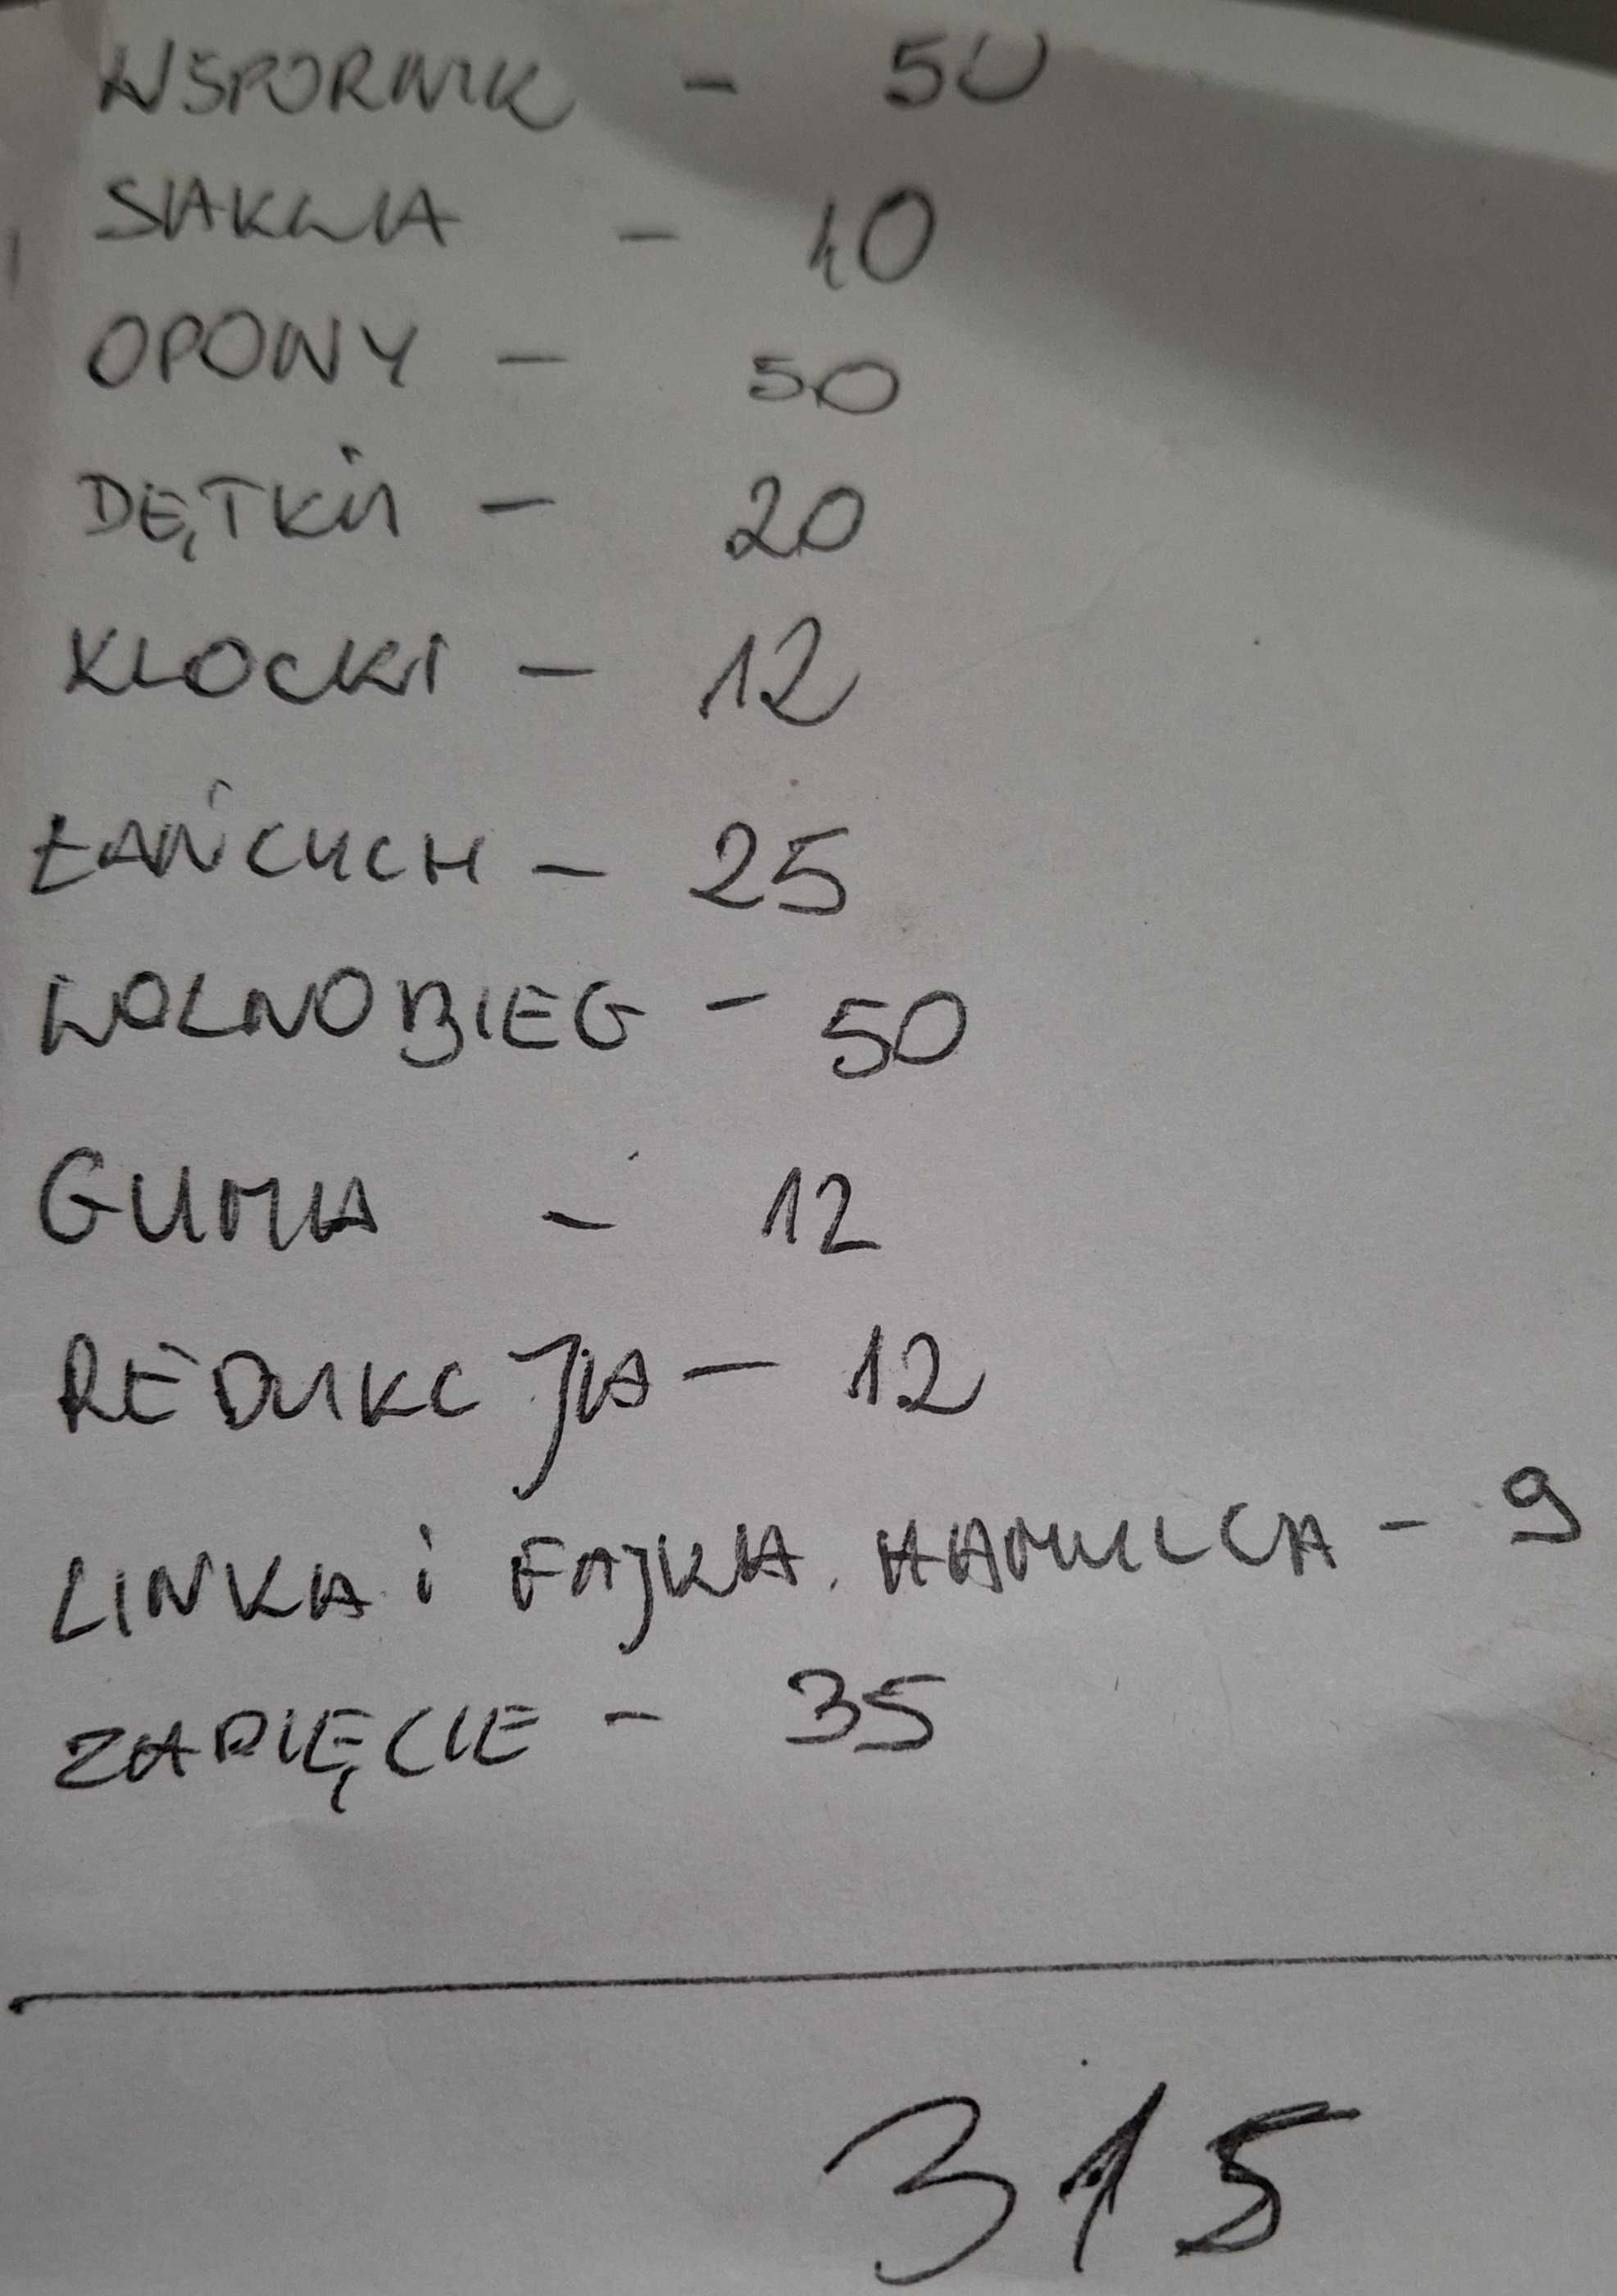 WSPORNIK - 50
SAKWA - 40
OPONY - 50
DĘTKI - 20
KLOCKI - 12
ŁAŃCUCH - 25
WOLNOBIEG - 50
GUMA - 12
REDUKCJA - 12
LINKA i FAJKA HAMULCA - 9
ZAPIĘCIE - 35
315